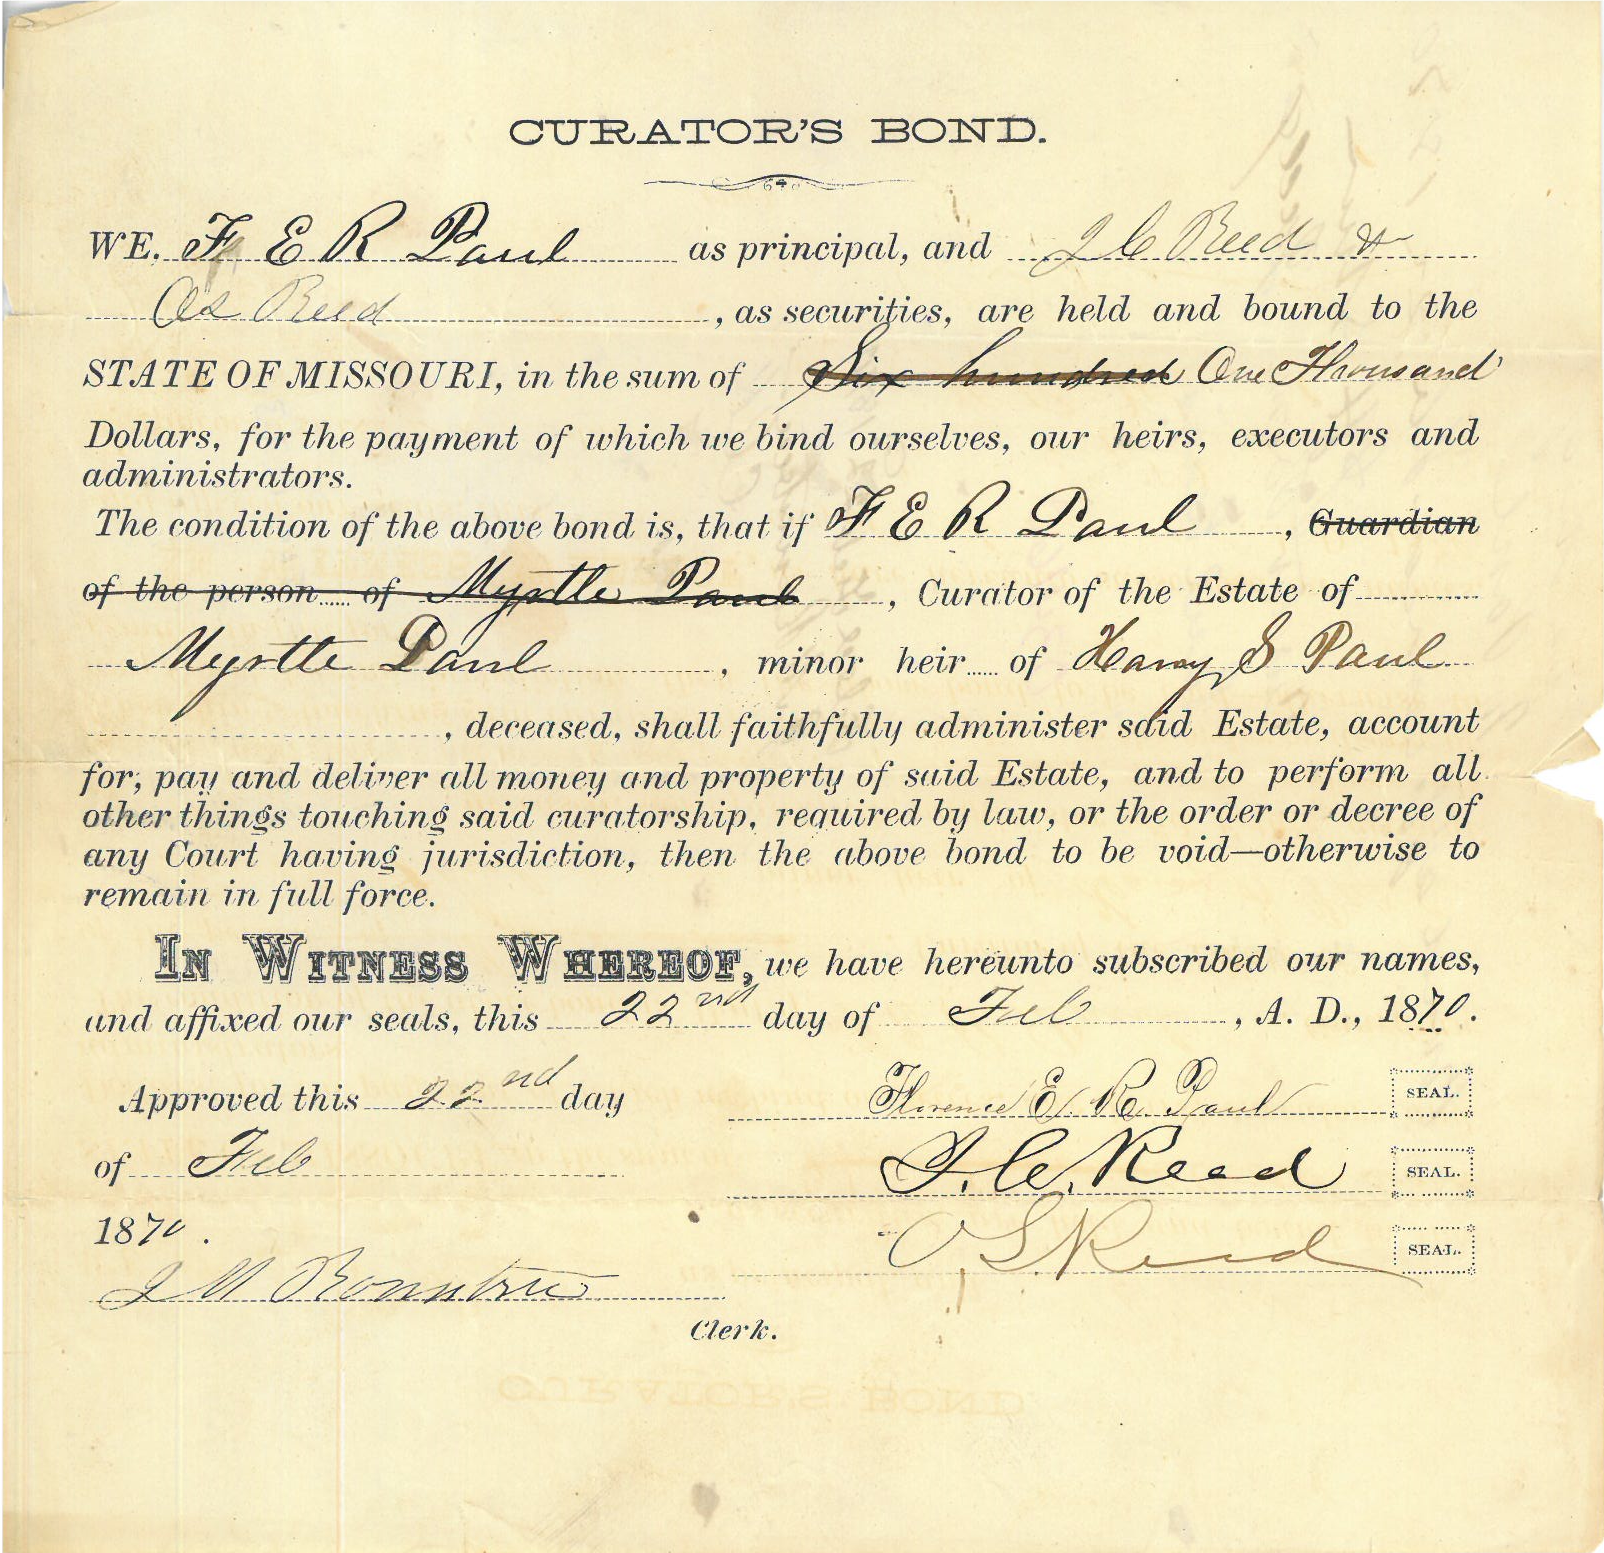 CURATOR'S BOND.
WE, F E R Paul as principal, and J C Reed &
O S Reed, as securities, are held and bound to the
STATE OF MISSOURI, in the sum of Six hundred One Thousand
Dollars, for the payment of which we bind ourselves, our heirs, executors and
administrators.
The condition of the above bond is, that if F E R Paul, Guardian
of the person of Myrtle Paul, Curator of the Estate of
Myrtle Paul, minor heir of Harry S Paul
, deceased, shall faithfully administer said Estate, account
for, pay and deliver all money and property of said Estate, and to perform all
other things touching said curatorship, required by law, or the order or decree of
any Court having jurisdiction, then the above bond to be void—otherwise to
remain in full force.
IN WITNESS WHEREOF, we have hereunto subscribed our names,
and affixed our seals, this 22nd day of Feb, A. D., 1870.
Approved this 22nd day
Florence E. R. Paul SEAL.
of Feb
J. C. Reed SEAL.
1870.
O. S. Reed SEAL.
J M Rountree
Clerk.